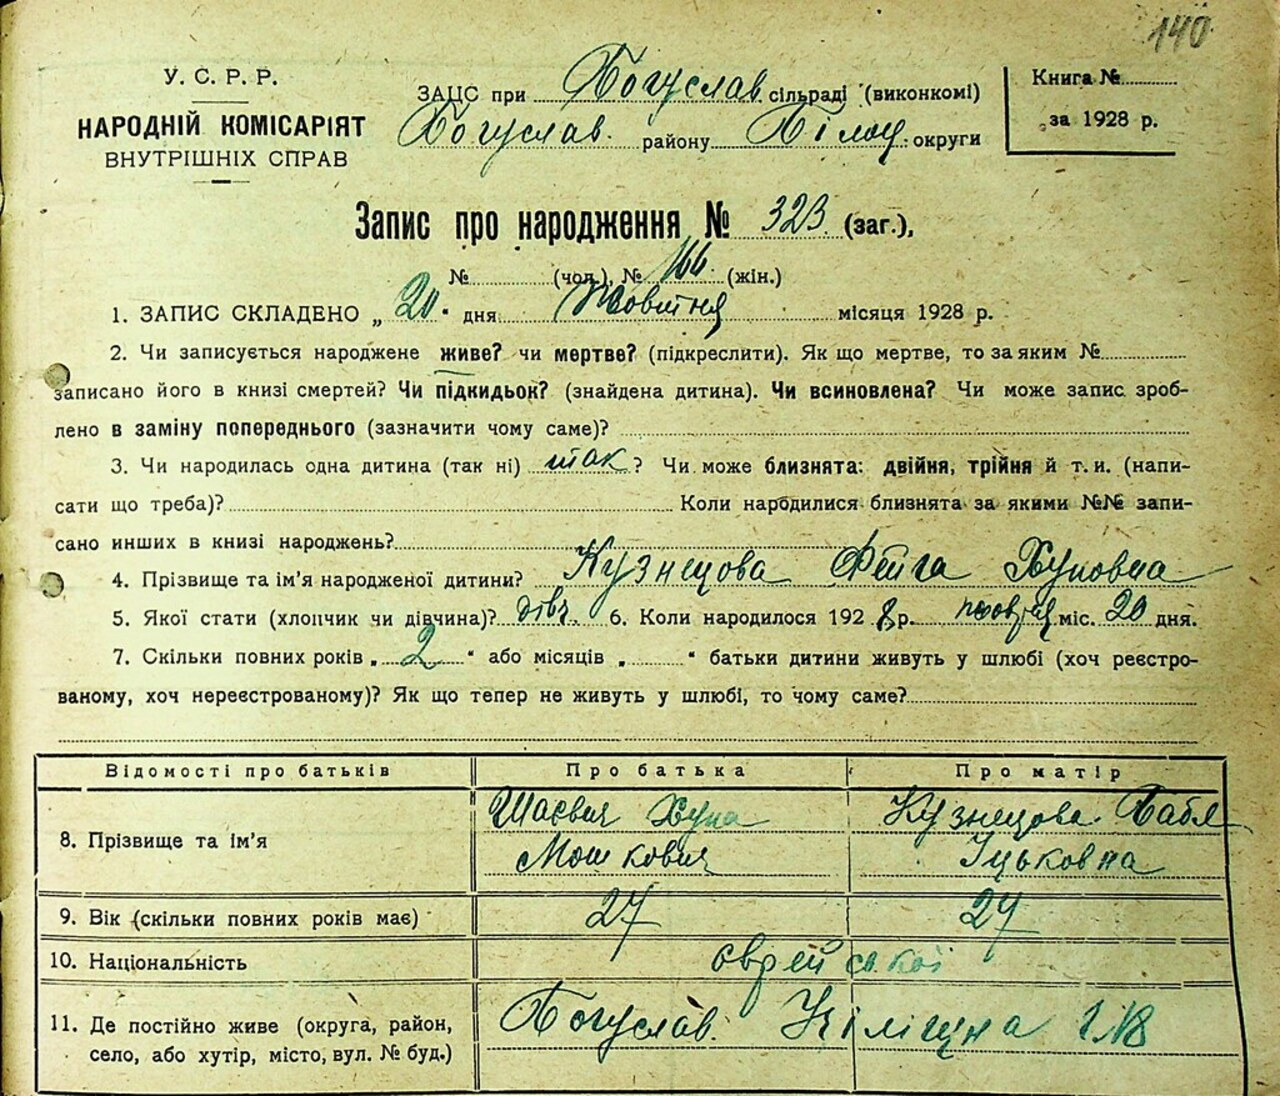 140
У. С. Р. Р.
НАРОДНІЙ КОМІСАРІЯТ
ВНУТРІШНІХ СПРАВ
ЗАЦС при Богуслав сільраді (виконкомі)
Богуслав. району Білоц. округи
Книга №
за 1928 р.
Запис про народження № 323 (заг.),
№ (чол.), № 166 (жін.)
1. ЗАПИС СКЛАДЕНО „ 20 “ дня Жовтня місяця 1928 р.
2. Чи записується народжене живе? чи мертве? (підкреслити). Як що мертве, то за яким №
записано його в книзі смертей? Чи підкидьок? (знайдена дитина). Чи всиновлена? Чи може запис зроб-
лено в заміну попереднього (зазначити чому саме)?
3. Чи народилась одна дитина (так ні) так ? Чи може близнята: двійня, трійня й т. и. (напи-
сати що треба)? Коли народилися близнята за якими №№ запи-
сано инших в книзі народжень?
4. Прізвище та ім’я народженої дитини? Кузнецова Фейга Хуновна
5. Якої стати (хлопчик чи дівчина)? дівч. 6. Коли народилося 1928 р. жовтня міс. 20 дня.
7. Скільки повних років „ 2 “ або місяців „ “ батьки дитини живуть у шлюбі (хоч реєстро-
ваному, хоч нереєстрованому)? Як що тепер не живуть у шлюбі, то чому саме?
Відомості про батьків Про батька Про матір
8. Прізвище та ім’я Шаєвич Хуна Кузнецова Бабл
Мошкович Іцьковна
9. Вік (скільки повних років має) 27 27
10. Національність єврейської
11. Де постійно живе (округа, район, Богуслав. №8
село, або хутір, місто, вул. № буд.)